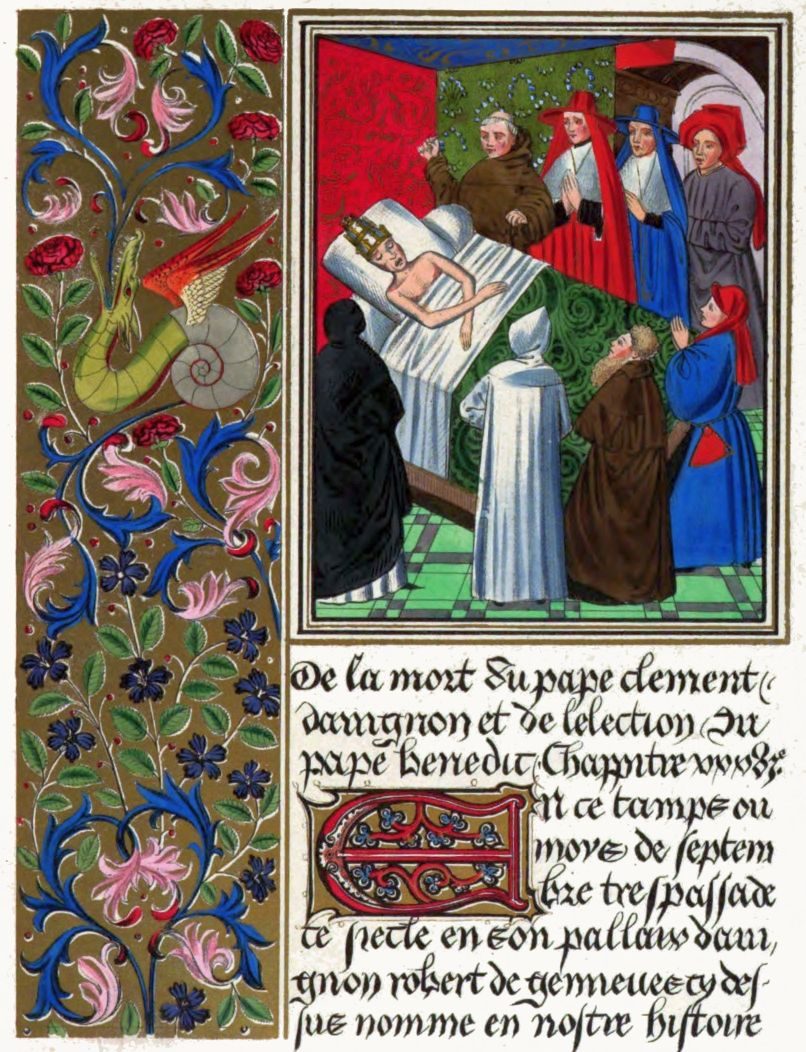 De la mort du pape clement
dauignon et de lelection du
pape benedic Chappitre xxxve
En ce tamps ou
moys de septem
bre trespassa de
ce siecle en son pallaix daui,
gnon robert de genneues cy des-
sus nomme en nostre histoire